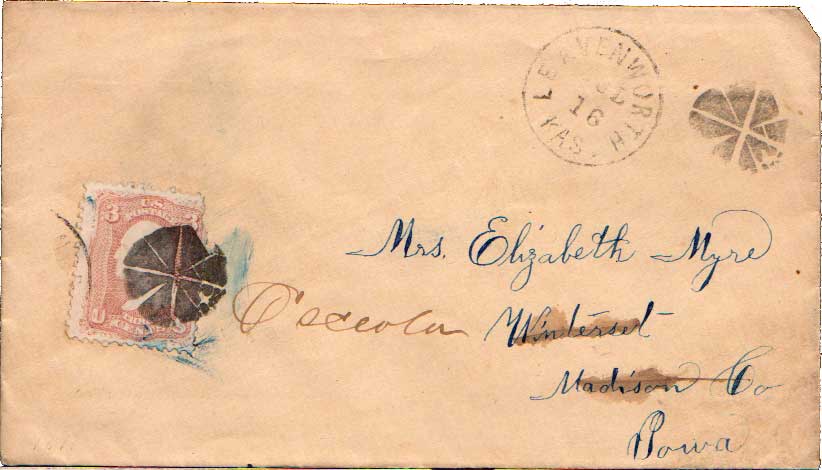 LEAVENWORTH
JUL
16
KAS.
3 U.S. POSTAGE 3
Mrs. Elizabeth Myre
Osceola Winterset
Madison Co
Iowa